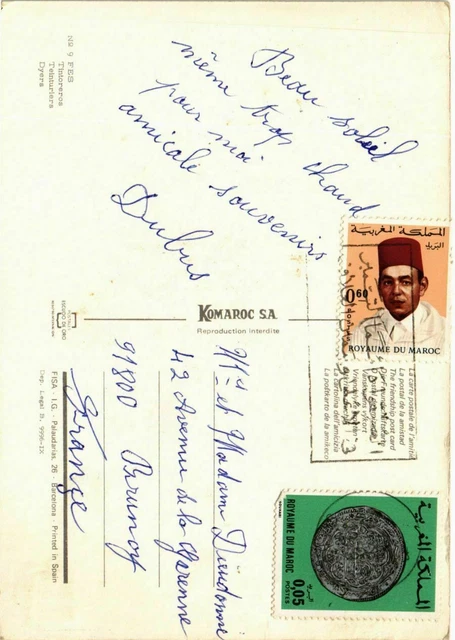 Nº 9 FES
Tintoreros
Teinturiers
Dyers
Beau soleil
même trop chaud
pour moi
amicale souvenirs
Dubus
KOMAROC S.A.
Reproduction interdite
ESCUDO DE ORO
FISA - I.G. Palaudarias, 26 - Barcelona - Printed in Spain
Dep. Legal B.
المملكة المغربية
البريد
0,60
ROYAUME DU MAROC
La carte postale de l'amitié
La postal de la amistad
The friendship post card
La cartolina dell'amicizia
La postkarto de la amikeco
Mr et Madam Dieudonné
42 Avenue de la Garenne
91800 Brunoy
France
المملكة المغربية
البريد
ROYAUME DU MAROC
0,05
POSTES